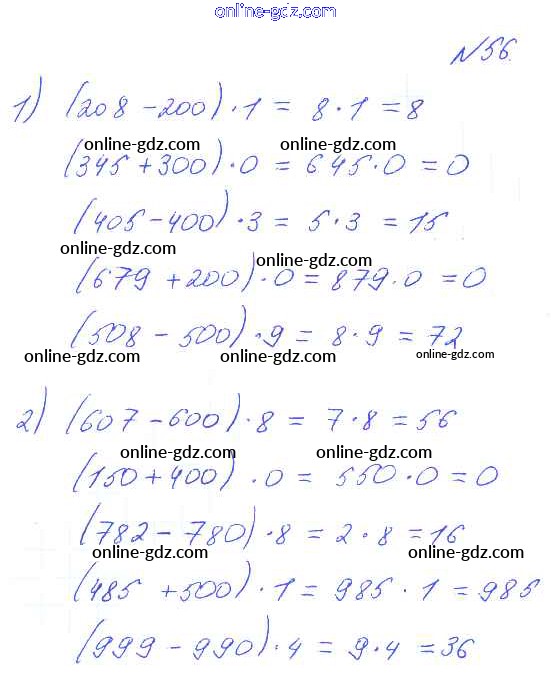 online-gdz.com
№56.
1) (208 - 200) · 1 = 8 · 1 = 8
online-gdz.com online-gdz.com
(345 + 300) · 0 = 645 · 0 = 0
(405 - 400) · 3 = 5 · 3 = 15
online-gdz.com online-gdz.com
(679 + 200) · 0 = 879 · 0 = 0
(508 - 500) · 9 = 8 · 9 = 72
online-gdz.com online-gdz.com online-gdz.com
2) (607 - 600) · 8 = 7 · 8 = 56
online-gdz.com online-gdz.com
(150 + 400) · 0 = 550 · 0 = 0
(782 - 780) · 8 = 2 · 8 = 16
online-gdz.com online-gdz.com
(485 + 500) · 1 = 985 · 1 = 985
online-gdz.com online-gdz.com
(999 - 990) · 4 = 9 · 4 = 36